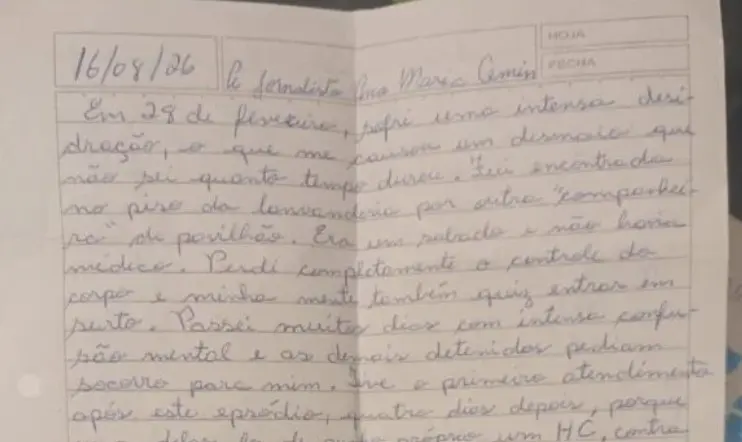 HOJA
16/08/26 P/ Jornalista Ana Maria Cemin
FECHA
Em 28 de fevereiro, sofri uma intensa desi-
dração, o que me causou um desmaio que
não sei quanto tempo durou. Fui encontrada
no piso da lavanderia por outra "companhei-
ra" de pavilhão. Era um sabado e não havia
médico. Perdi completamente o controle do
corpo e minha mente também quiz entrar em
surto. Passei muitos dias com intensa confu-
são mental e as demais detenidas pediam
socorro para mim. Tive o primeiro atendimento
após este episódio, quatro dias depois, porque
próprio um HC, contra